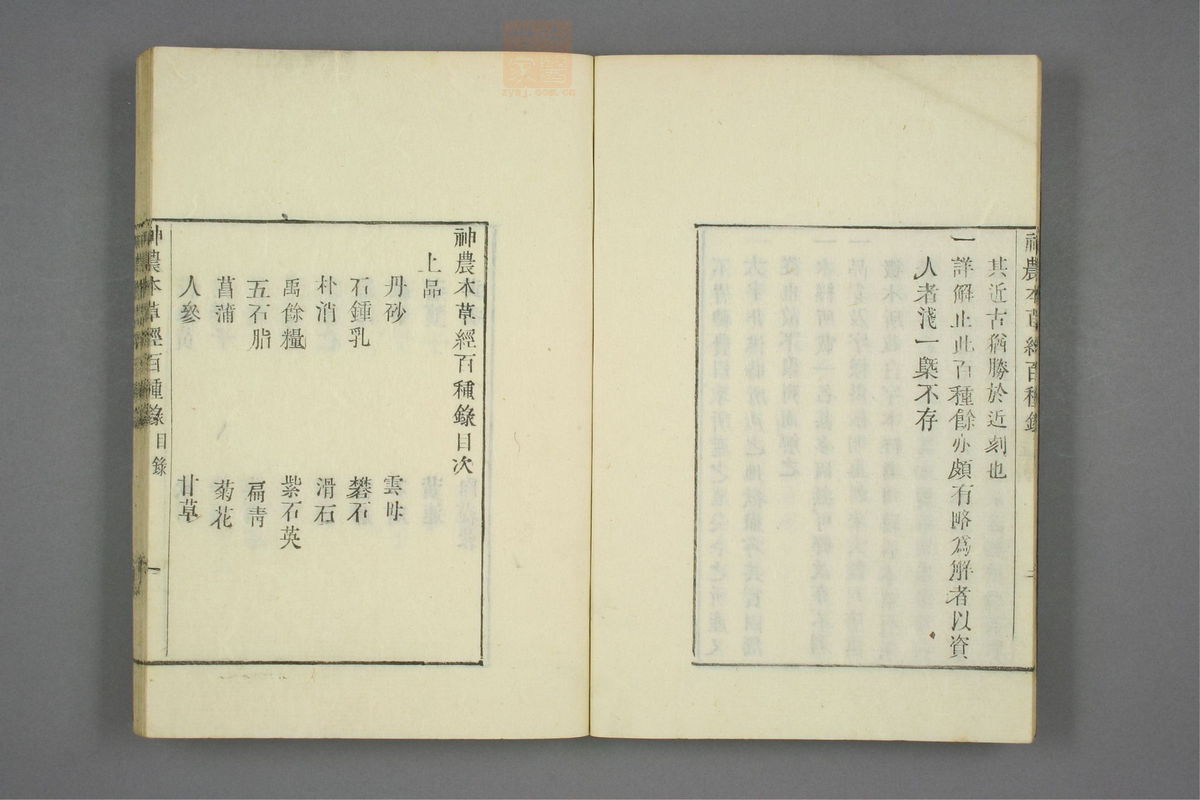 神農本草經百種錄
其近古猶勝於近刻也
一詳解止此百種餘亦頗有略爲觧者以資
人者淺一槩不存
神農本草經百種錄目次
上品
丹砂
雲母
石鍾乳
礬石
朴消
滑石
禹餘糧
紫石英
五石脂
扁青
菖蒲
菊花
人參
甘草
神農本草經百種錄 目錄 一
zysj.com.cn